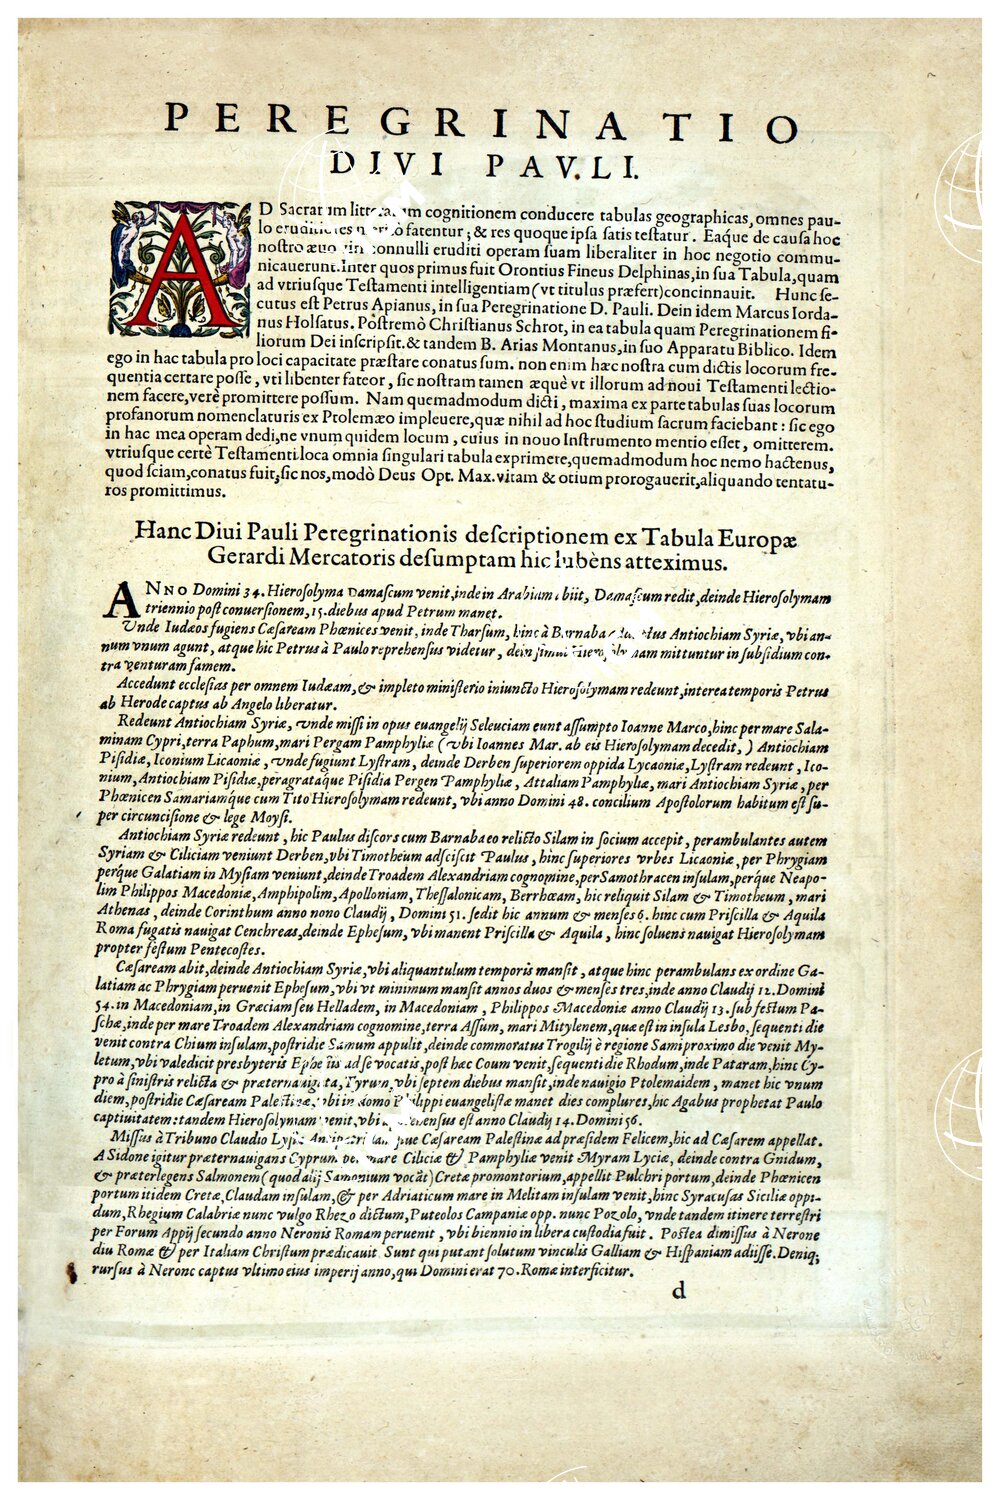 PEREGRINATIO
DIVI PAVLI.
AD Sacrarum litterarum cognitionem conducere tabulas geographicas, omnes pau-
lo eruditiores meritò fatentur; & res quoque ipsa satis testatur. Eaque de causa hoc
nostro æuo viri nonnulli eruditi operam suam liberaliter in hoc negotio commu-
nicauerunt. Inter quos primus fuit Orontius Fineus Delphinas, in sua Tabula, quam
ad vtriusque Testamenti intelligentiam (vt titulus præfert) concinnauit. Hunc se-
cutus est Petrus Apianus, in sua Peregrinatione D. Pauli. Dein idem Marcus Iorda-
nus Holsatus. Postremò Christianus Schrot, in ea tabula quam Peregrinationem fi-
liorum Dei inscripsit. & tandem B. Arias Montanus, in suo Apparatu Biblico. Idem
ego in hac tabula pro loci capacitate præstare conatus sum. non enim hæc nostra cum dictis locorum fre-
quentia certare posse, vti libenter fateor, sic nostram tamen æquè vt illorum ad noui Testamenti lectio-
nem facere, verè promittere possum. Nam quemadmodum dicti, maxima ex parte tabulas suas locorum
profanorum nomenclaturis ex Ptolemæo impleuere, quæ nihil ad hoc studium sacrum faciebant: sic ego
in hac mea operam dedi, ne vnum quidem locum, cuius in nouo Instrumento mentio esset, omitterem.
vtriusque certè Testamenti loca omnia singulari tabula exprimere, quemadmodum hoc nemo hactenus,
quod sciam, conatus fuit, sic nos, modò Deus Opt. Max. vitam & otium prorogauerit, aliquando tentatu-
ros promittimus.
Hanc Diui Pauli Peregrinationis descriptionem ex Tabula Europæ
Gerardi Mercatoris desumptam hic lubèns atteximus.
ANNO Domini 34. Hierosolyma Damascum venit, inde in Arabiam abiit, Damascum redit, deinde Hierosolymam
triennio post conuersionem, 15. diebus apud Petrum manet.
Vnde Iudæos fugiens Cæsaream Phœnices venit, inde Tharsum, hinc à Barnaba Antiochiam Syriæ, vbi an-
num vnum agunt, atque hic Petrus à Paulo reprehensus videtur, dein simul Hierosolymam mittuntur in subsidium con-
tra venturam famem.
Accedunt ecclesias per omnem Iudæam, & impleto ministerio iniuncto Hierosolymam redeunt, interea temporis Petrus
ab Herode captus ab Angelo liberatur.
Redeunt Antiochiam Syriæ, vnde missi in opus euangelij Seleuciam eunt assumpto Ioanne Marco, hinc per mare Sala-
minam Cypri, terra Paphum, mari Pergam Pamphyliæ (vbi Ioannes Mar. ab eis Hierosolymam decedit,) Antiochiam
Pisidiæ, Iconium Licaoniæ, vnde fugiunt Lystram, deinde Derben superiorem oppida Lycaoniæ, Lystram redeunt, Ico-
nium, Antiochiam Pisidiæ, peragrataque Pisidia Pergen Pamphyliæ, Attaliam Pamphyliæ, mari Antiochiam Syriæ, per
Phœnicen Samariamque cum Tito Hierosolymam redeunt, vbi anno Domini 48. concilium Apostolorum habitum est su-
per circuncisione & lege Moysi.
Antiochiam Syriæ redeunt, hic Paulus discors cum Barnaba eo relicto Silam in socium accepit, perambulantes autem
Syriam & Ciliciam veniunt Derben, vbi Timotheum adsciscit Paulus, hinc superiores vrbes Licaoniæ, per Phrygiam
perque Galatiam in Mysiam veniunt, deinde Troadem Alexandriam cognomine, per Samothracen insulam, perque Neapo-
lim Philippos Macedoniæ, Amphipolim, Apolloniam, Thessalonicam, Berrhœam, hic reliquit Silam & Timotheum, mari
Athenas, deinde Corinthum anno nono Claudij, Domini 51. sedit hic annum & menses 6. hinc cum Priscilla & Aquila
Roma fugatis nauigat Cenchreas, deinde Ephesum, vbi manent Priscilla & Aquila, hinc soluens nauigat Hierosolymam
propter festum Pentecostes.
Cæsaream abit, deinde Antiochiam Syriæ, vbi aliquantulum temporis mansit, atque hinc perambulans ex ordine Ga-
latiam ac Phrygiam peruenit Ephesum, vbi vt minimum mansit annos duos & menses tres, inde anno Claudij 12. Domini
54. in Macedoniam, in Græciam seu Helladem, in Macedoniam, Philippos Macedoniæ anno Claudij 13. sub festum Pa-
schæ, inde per mare Troadem Alexandriam cognomine, terra Assum, mari Mitylenem, quæ est in insula Lesbo, sequenti die
venit contra Chium insulam, postridie Samum appulit, deinde commoratus Trogilij è regione Sami proximo die venit My-
letum, vbi valedicit presbyteris Ephesiis ad se vocatis, post hæc Coum venit, sequenti die Rhodum, inde Pataram, hinc Cy-
pro à sinistris relicta & præternauigata, Tyrum, vbi septem diebus mansit, inde nauigio Ptolemaidem, manet hic vnum
diem, postridie Cæsaream Palestinæ, vbi in domo Philippi euangelistæ manet dies complures, hic Agabus prophetat Paulo
captiuitatem: tandem Hierosolymam venit, vbi est anno Claudij 14. Domini 56.
Missus à Tribuno Claudio Lysia Antipatridam, Cæsaream Palestinæ ad præsidem Felicem, hic ad Cæsarem appellat.
A Sidone igitur præternauigans Cyprum per mare Ciliciæ & Pamphyliæ venit Myram Lyciæ, deinde contra Gnidum,
& præterlegens Salmonem (quod alij Samonium vocāt) Cretæ promontorium, appellit Pulchri portum, deinde Phœnicen
portum itidem Cretæ, Claudam insulam, & per Adriaticum mare in Melitam insulam venit, hinc Syracusas Siciliæ oppi-
dum, Rhegium Calabriæ nunc vulgo Rhezo dictum, Puteolos Campaniæ opp. nunc Pozolo, vnde tandem itinere terrestri
per Forum Appij secundo anno Neronis Romam peruenit, vbi biennio in libera custodia fuit. Postea dimissus à Nerone
diu Romæ & per Italiam Christum prædicauit. Sunt qui putant solutum vinculis Galliam & Hispaniam adiisse. Deniq;
rursus à Nerone captus vltimo eius imperij anno, qui Domini erat 70. Romæ interficitur.
d